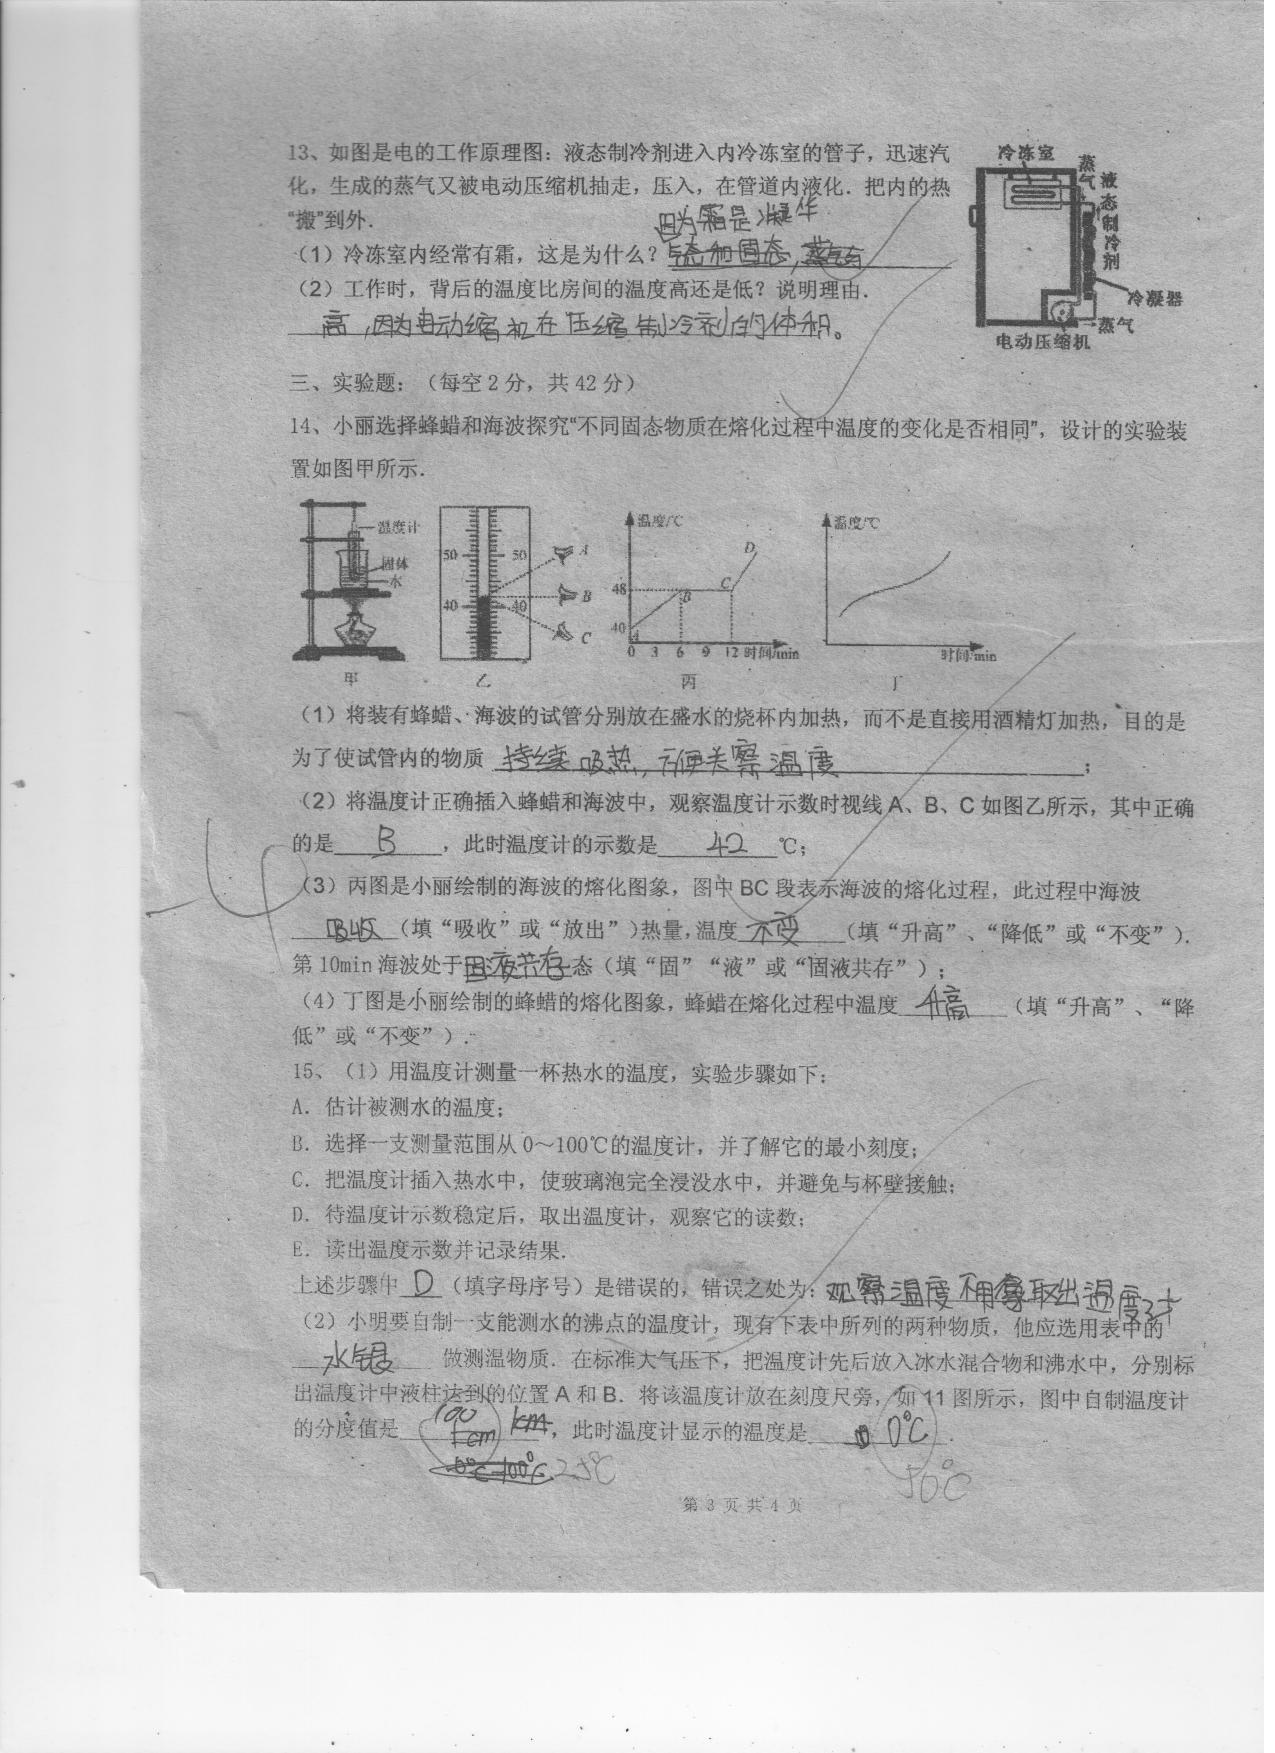 13、如图是电的工作原理图：液态制冷剂进入内冷冻室的管子，迅速汽
化，生成的蒸气又被电动压缩机抽走，压入，在管道内液化．把内的热
“搬”到外．
因为霜是凝华
（1）冷冻室内经常有霜，这是为什么？
（2）工作时，背后的温度比房间的温度高还是低？说明理由．
高，因为电动缩机在压缩制冷剂的体积。
冷冻室
蒸气
液态制冷剂
冷凝器
蒸气
电动压缩机
三、实验题：（每空2分，共42分）
14、小丽选择蜂蜡和海波探究“不同固态物质在熔化过程中温度的变化是否相同”，设计的实验装
置如图甲所示．
温度计
固体
水
甲
50 50
40 40
A
B
C
乙
温度/℃
48
40
A B C D
0 3 6 9 12 时间/min
丙
温度/℃
时间/min
丁
（1）将装有蜂蜡、海波的试管分别放在盛水的烧杯内加热，而不是直接用酒精灯加热，目的是
为了使试管内的物质 持续吸热，方便关察温度；
（2）将温度计正确插入蜂蜡和海波中，观察温度计示数时视线A、B、C如图乙所示，其中正确
的是 B ，此时温度计的示数是 42 ℃；
（3）丙图是小丽绘制的海波的熔化图象，图中BC段表示海波的熔化过程，此过程中海波
吸收（填“吸收”或“放出”）热量，温度 不变 （填“升高”、“降低”或“不变”）．
第10min海波处于固液共存态（填“固”“液”或“固液共存”）；
（4）丁图是小丽绘制的蜂蜡的熔化图象，蜂蜡在熔化过程中温度 升高 （填“升高”、“降
低”或“不变”）．
15、（1）用温度计测量一杯热水的温度，实验步骤如下：
A．估计被测水的温度；
B．选择一支测量范围从0～100℃的温度计，并了解它的最小刻度；
C．把温度计插入热水中，使玻璃泡完全浸没水中，并避免与杯壁接触；
D．待温度计示数稳定后，取出温度计，观察它的读数；
E．读出温度示数并记录结果．
上述步骤中 D （填字母序号）是错误的，错误之处为：观察温度不用拿取出温度计
（2）小明要自制一支能测水的沸点的温度计，现有下表中所列的两种物质，他应选用表中的
水银 做测温物质．在标准大气压下，把温度计先后放入冰水混合物和沸水中，分别标
出温度计中液柱达到的位置A和B．将该温度计放在刻度尺旁，如11图所示，图中自制温度计
的分度值是 100 1cm ，此时温度计显示的温度是 0℃ ．
2.5℃
50℃
第 3 页 共 4 页